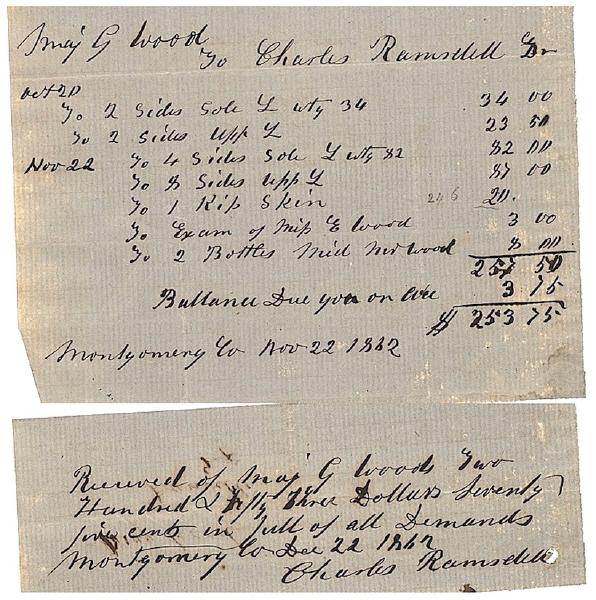 Maj G Wood
To Charles Ramsdell Dr
Oct 20
To 2 Sides Sole L wty 34 34 00
To 2 Sides Upp L 23 50
Nov 22 To 4 Sides Sole L wty 82 82 00
To 8 Sides Upp L 87 00
To 1 Kip Skin 246 20.
To Exam of Miss E Wood 3 00
To 2 Bottles Mid Mr Wood 8 00
257 50
Ballance Due you on 3 75
$ 253 75
Montgomery Co Nov 22 1862
Recieved of Maj G Woods Two
Hundred & fifty Three Dollars Seventy
five cents in full of all Demands
Montgomery Co Dec 22 1862
Charles Ramsdell